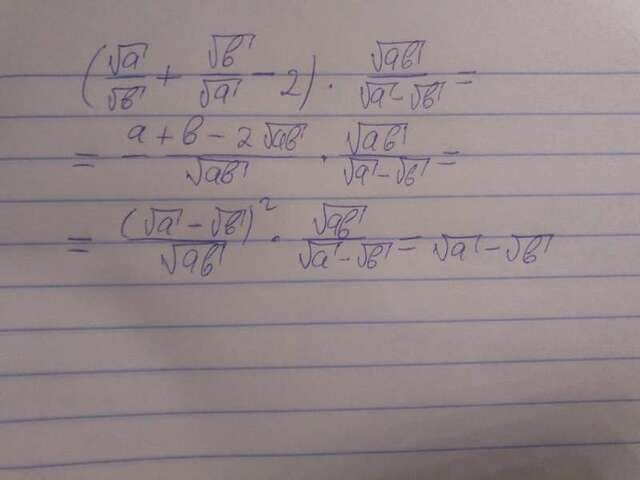 (√a/√b + √b/√a - 2) · √ab/(√a - √b) =
= (a + b - 2√ab)/√ab · √ab/(√a - √b) =
= (√a - √b)²/√ab · √ab/(√a - √b) = √a - √b